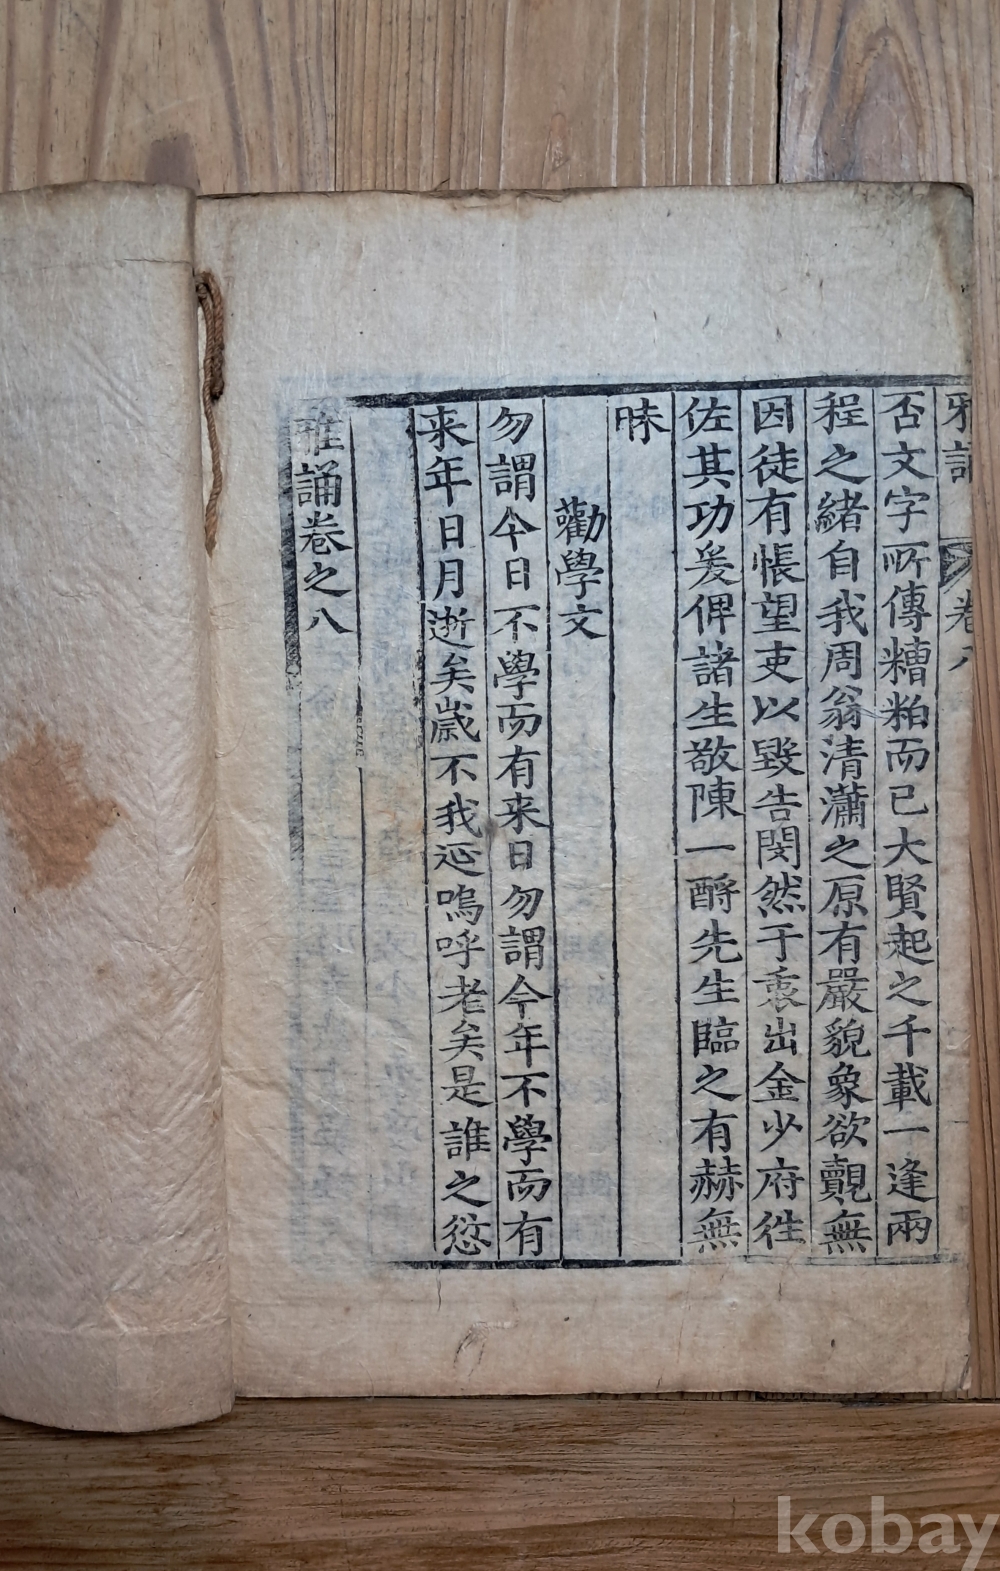 雅誦 卷八
否文字所傳糟粕而已大賢起之千載一逢兩
程之緒自我周翁清瀟之原有嚴貌象欲覿無
因徒有悵望吏以毀告閔然于衷出金少府徃
佐其功爰俾諸生敬陳一酹先生臨之有赫無
昧
勸學文
勿謂今日不學而有来日勿謂今年不學而有
来年日月逝矣歲不我延嗚呼老矣是誰之愆
雅誦卷之八
kobay